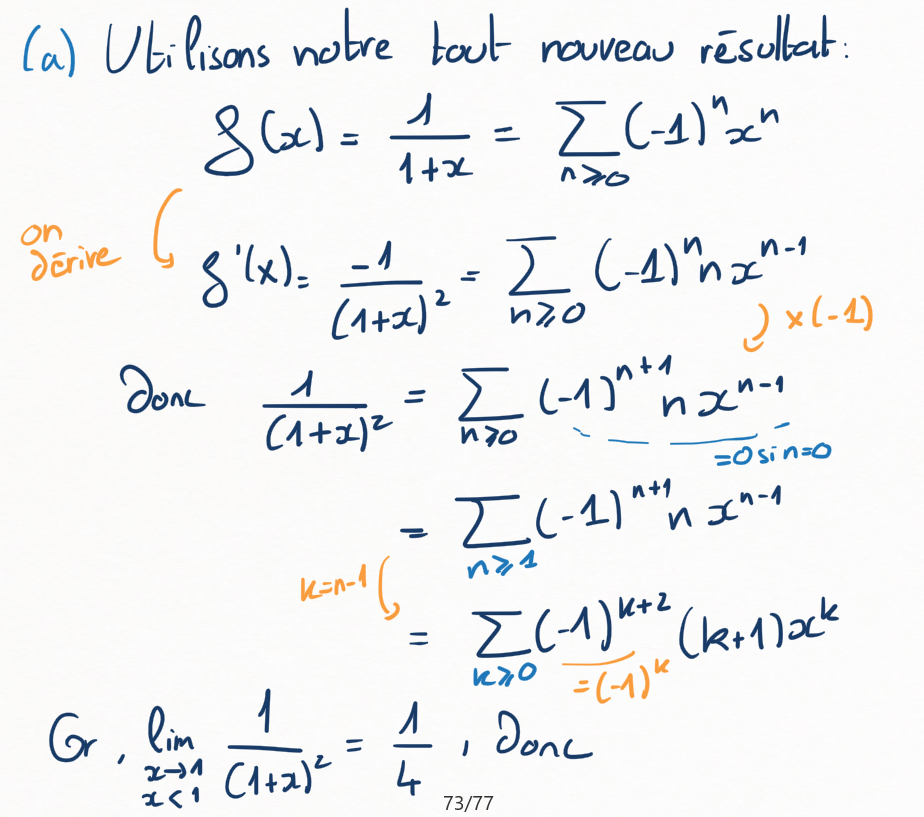 (a) Utilisons notre tout nouveau résultat:
f(x) = 1/(1+x) = ∑_{n⩾0} (-1)^n x^n
on dérive
f'(x) = -1/(1+x)^2 = ∑_{n⩾0} (-1)^n n x^{n-1}
×(-1)
Donc 1/(1+x)^2 = ∑_{n⩾0} (-1)^{n+1} n x^{n-1}
=0 si n=0
= ∑_{n⩾1} (-1)^{n+1} n x^{n-1}
k=n-1
= ∑_{k⩾0} (-1)^{k+2} (k+1) x^k
=(-1)^k
Or, lim_{x→1, x<1} 1/(1+x)^2 = 1/4, Donc
73/77